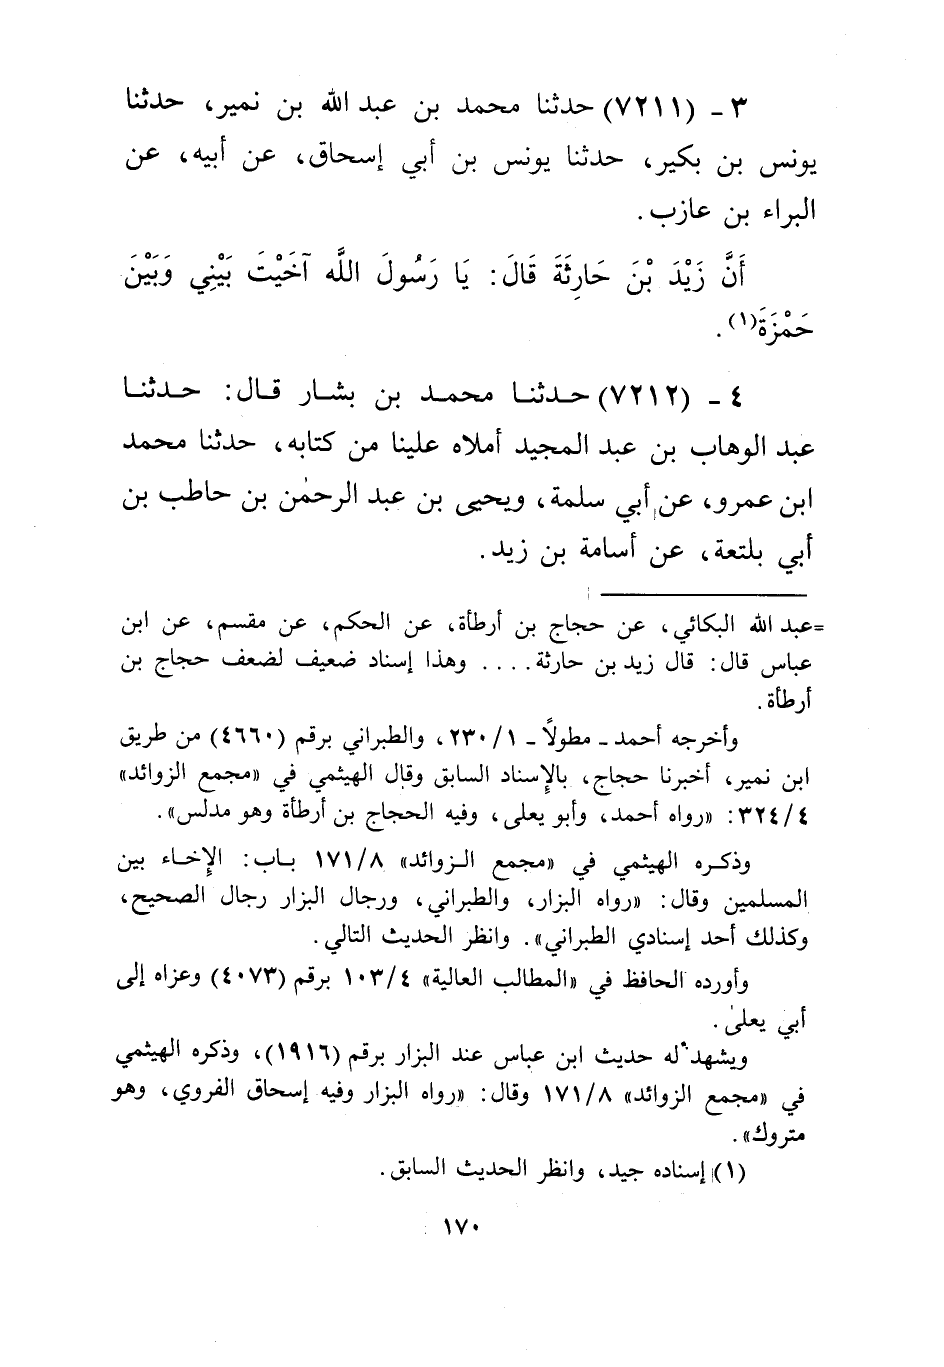 ٣ - (٧٢١١) حدثنا محمد بن عبد الله بن نمير، حدثنا
يونس بن بكير، حدثنا يونس بن أبي إسحاق، عن أبيه، عن
البراء بن عازب.
أَنَّ زَيْدَ بْنَ حَارِثَةَ قَالَ: يَا رَسُولَ اللَّه آخَيْتَ بَيْنِي وَبَيْنَ
حَمْزَةَ(١).
٤ - (٧٢١٢) حدثنا محمد بن بشار قال: حدثنا
عبد الوهاب بن عبد المجيد أملاه علينا من كتابه، حدثنا محمد
ابن عمرو، عن أبي سلمة، ويحيى بن عبد الرحمٰن بن حاطب بن
أبي بلتعة، عن أسامة بن زيد.
=عبد الله البكائي، عن حجاج بن أرطأة، عن الحكم، عن مقسم، عن ابن
عباس قال: قال زيد بن حارثة .... وهذا إسناد ضعيف لضعف حجاج بن
أرطأة.
وأخرجه أحمد - مطولاً - ٢٣٠/١، والطبراني برقم (٤٦٦٠) من طريق
ابن نمير، أخبرنا حجاج، بالإسناد السابق وقال الهيثمي في «مجمع الزوائد»
٣٢٤/٤: «رواه أحمد، وأبو يعلى، وفيه الحجاج بن أرطأة وهو مدلس».
وذكره الهيثمي في «مجمع الزوائد» ١٧١/٨ باب: الإخاء بين
المسلمين وقال: «رواه البزار، والطبراني، ورجال البزار رجال الصحيح،
وكذلك أحد إسنادي الطبراني». وانظر الحديث التالي.
وأورده الحافظ في «المطالب العالية» ١٠٣/٤ برقم (٤٠٧٣) وعزاه إلى
أبي يعلىٰ.
ويشهد له حديث ابن عباس عند البزار برقم (١٩١٦)، وذكره الهيثمي
في «مجمع الزوائد» ١٧١/٨ وقال: «رواه البزار وفيه إسحاق الفروي، وهو
متروك».
(١) إسناده جيد، وانظر الحديث السابق.
١٧٠